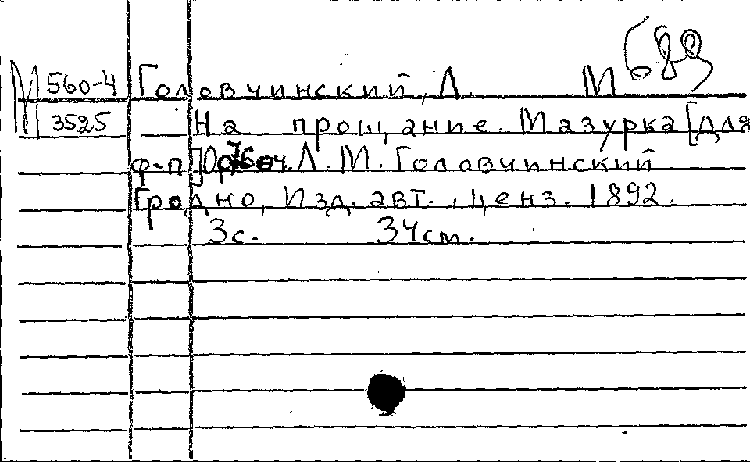 М 560-4 Головчинский, Л. М 689
3525 На прощание. Мазурка [для
ф-п.] Ор. 76 соч. Л. М. Головчинский
Гродно, Изд. авт., ценз. 1892.
3с. 34см.